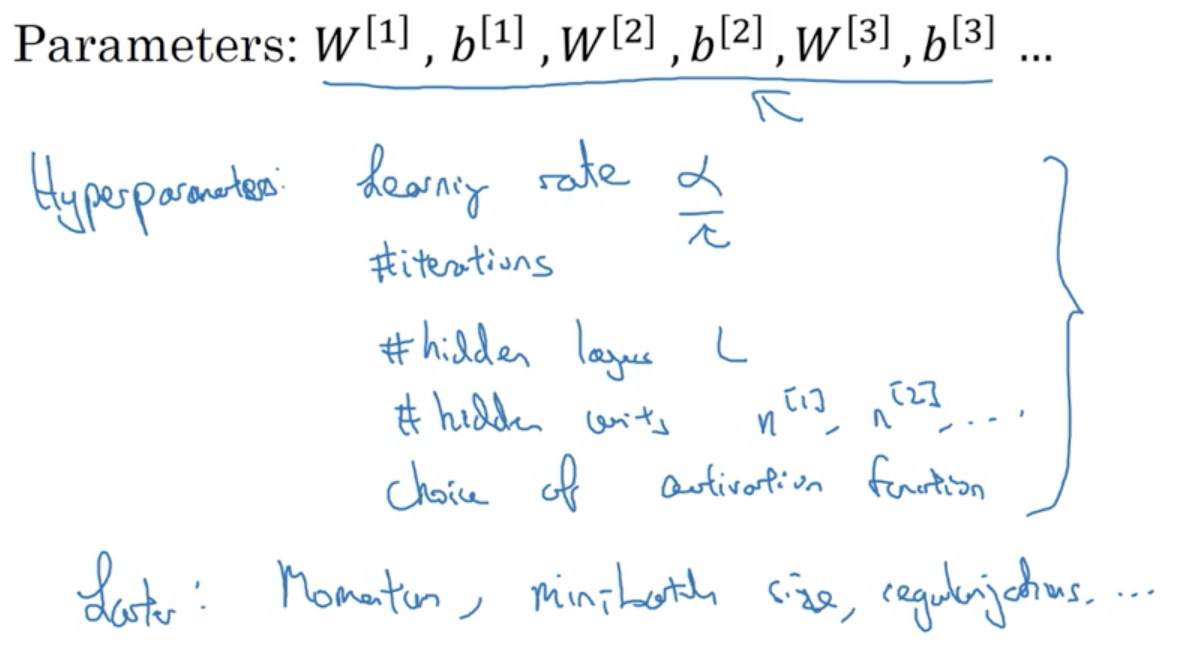 Parameters: W[1], b[1], W[2], b[2], W[3], b[3] ...
Hyperparameters: Learning rate α
#iterations
#hidden layers L
# hidden units n[1], n[2], ....
choice of activation function
Later: Momentum, mini-batch size, regularizations. ...